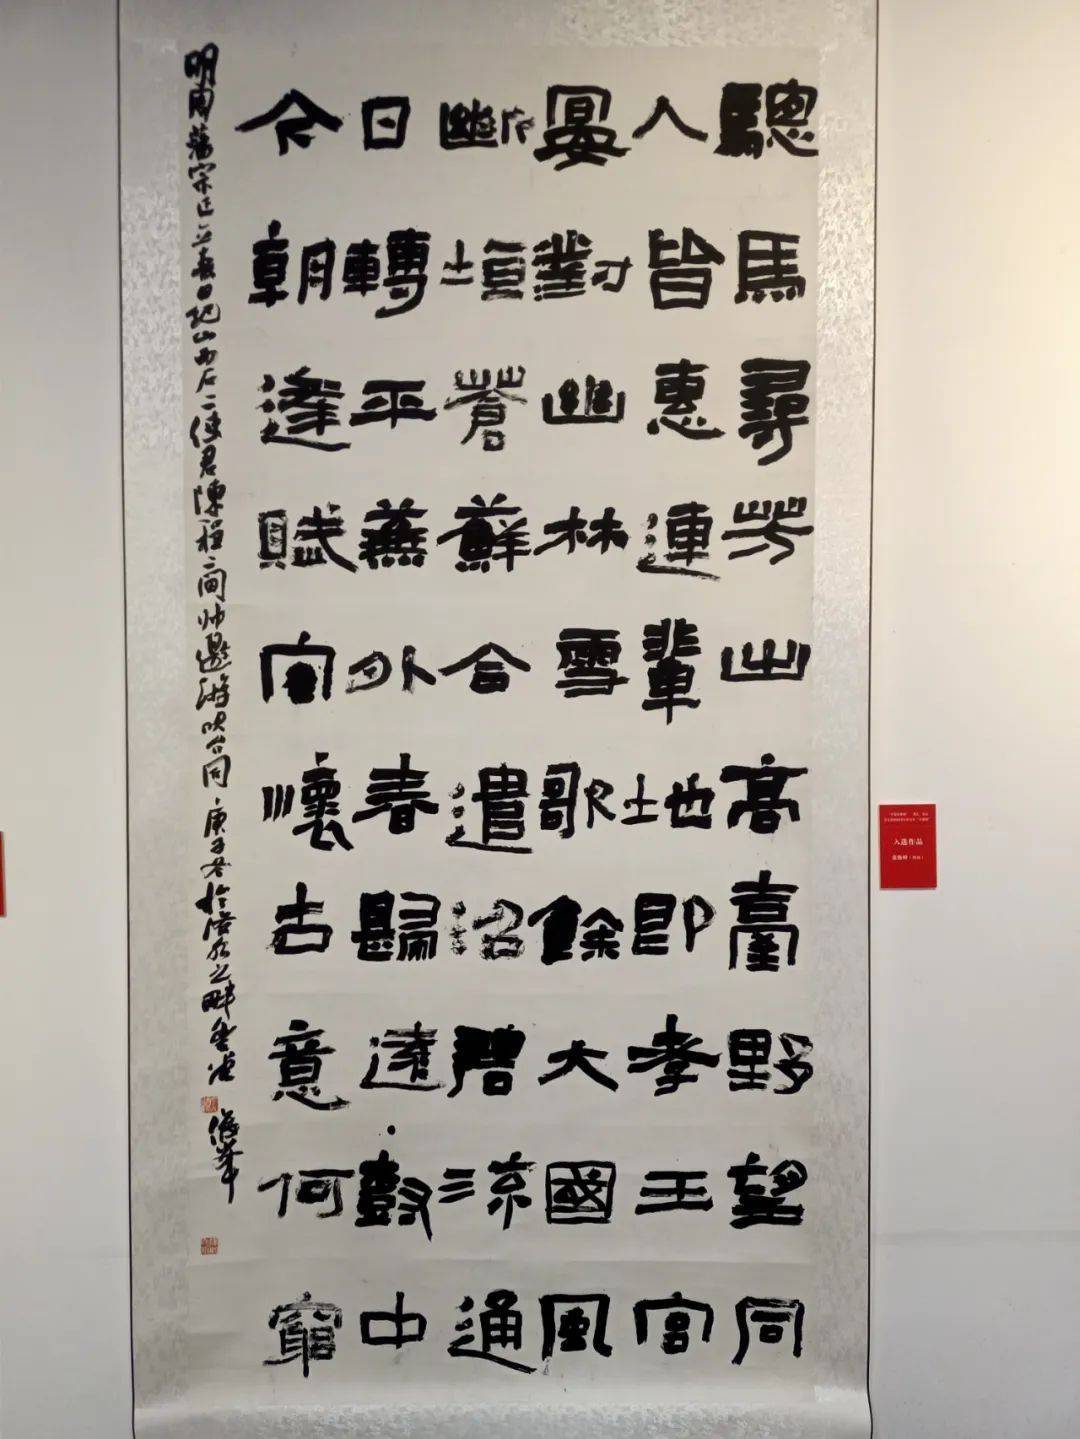 驄馬尋芳出高臺野望同
人皆惠連輩地即孝王宮
宴對幽林雪歌餘大國風
斷垣蒼蘚合遺沼碧流通
日轉平蕪外春歸遠鼓中
今朝逢賦向懷古意何窮
明周藩宗正立春日紀山西石二使君陳程二閫帅邀游吹台同 庚子冬於洛水之畔
入选作品